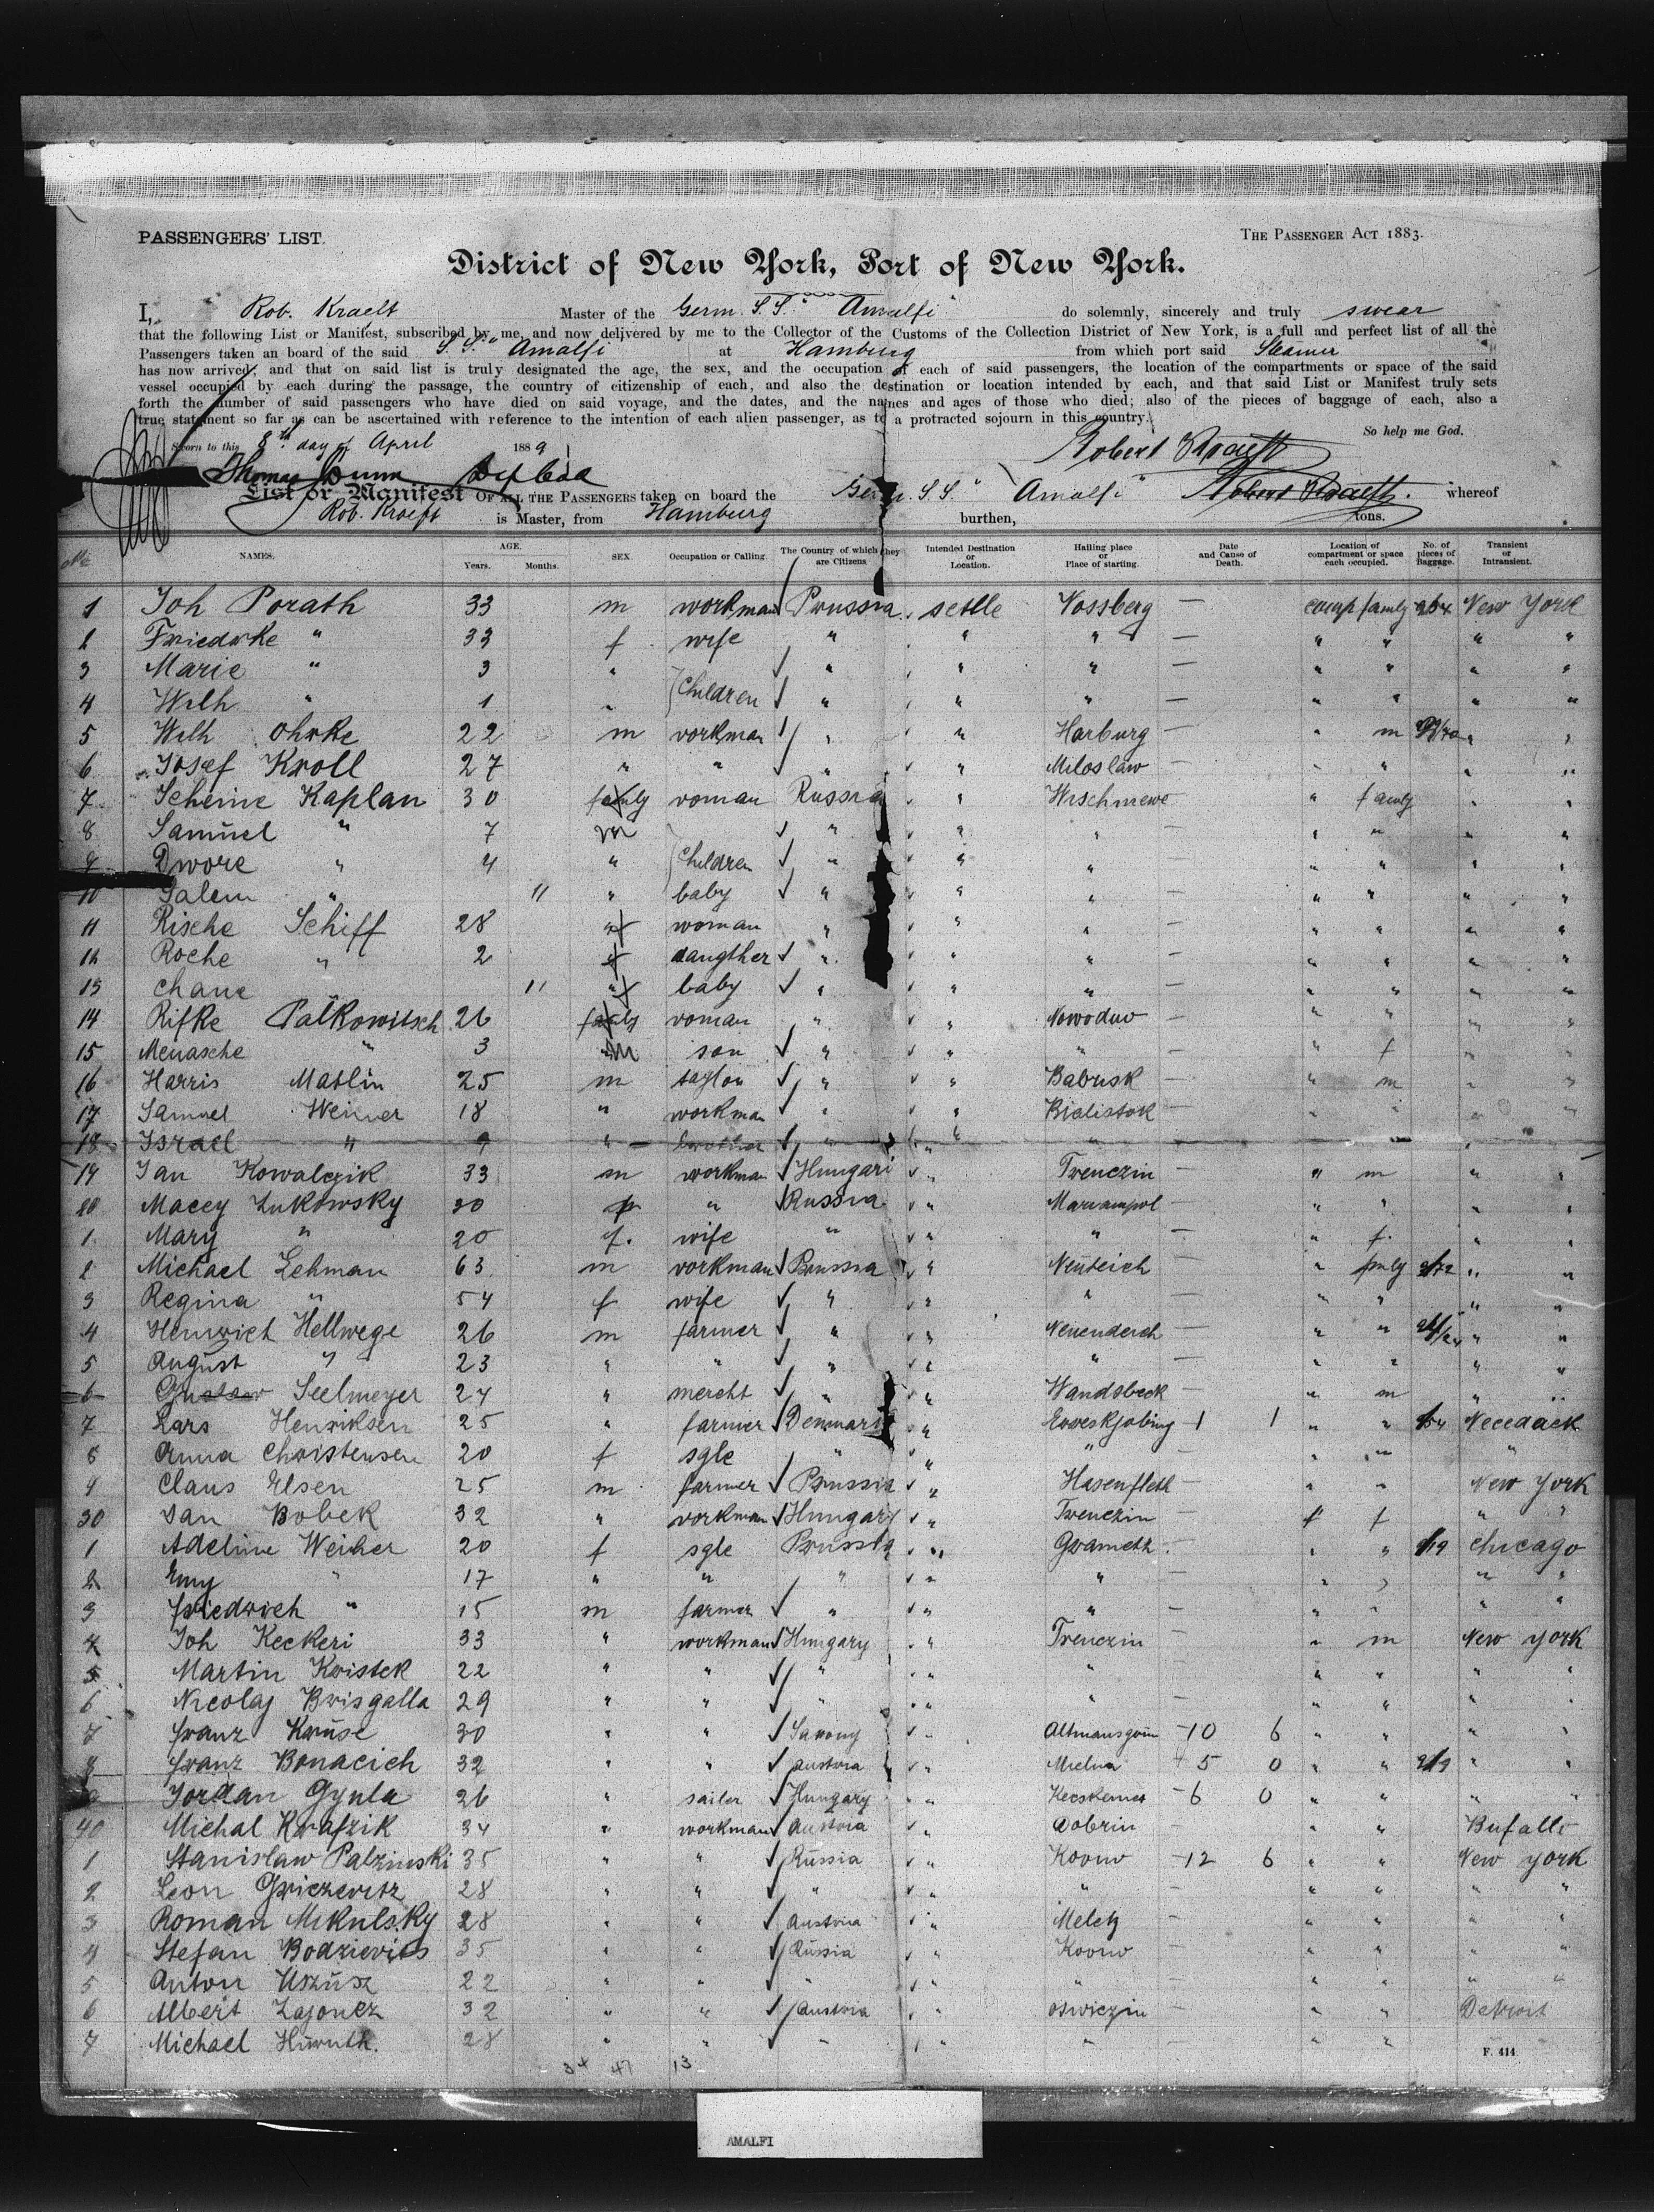 PASSENGERS' LIST.
THE PASSENGER ACT 1883.
District of New York, Port of New York.
I, Rob. Kraeft Master of the Germ. S.S. " Amalfi " do solemnly, sincerely and truly swear
that the following List or Manifest, subscribed by me, and now delivered by me to the Collector of the Customs of the Collection District of New York, is a full and perfect list of all the
Passengers taken an board of the said S.S. " Amalfi " at Hamburg from which port said Steamer
has now arrived; and that on said list is truly designated the age, the sex, and the occupation of each of said passengers, the location of the compartments or space of the said
vessel occupied by each during the passage, the country of citizenship of each, and also the destination or location intended by each, and that said List or Manifest truly sets
forth the number of said passengers who have died on said voyage, and the dates, and the names and ages of those who died; also of the pieces of baggage of each, also a
true statement so far as can be ascertained with reference to the intention of each alien passenger, as to a protracted sojourn in this country.
So help me God.
Sworn to this 8th day of April 1889
Robert Kraeft
Thomas Dunn
List or Manifest OF ALL THE PASSENGERS taken on board the Germ. S.S. " Amalfi " Robert Kraeft. whereof
Rob. Kraeft is Master, from Hamburg burthen, tons.
No. NAMES. AGE. Years. Months. SEX Occupation or Calling. The Country of which they are Citizens Intended Destination or Location. Hailing place or Place of starting. Date and Cause of Death. Location of compartment or space each occupied. No. of pieces of Baggage. Transient or Intransient.
1 Joh Porath 33 m workman Prussia settle Vossberg — comp famly New York
2 Friedrke " 33 f wife " " " — " " " "
3 Marie " 3 " Children " " " — " " " "
4 Wilh " 1 " " " " — " " " "
5 Wilh Ohrke 22 m workman " " Harburg — " m " "
6 Josef Kroll 27 " " " " Miloslaw — " " " "
7 Scheine Kaplan 30 famly woman Russia " Wischnewe " famly " "
8 Samuel " 7 m " " " " " " "
9 Dwore " 4 " Children " " " " " " "
10 Salem " 11 " baby " " " — " " " "
11 Rische Schiff 28 " woman " " " — " " " "
12 Roche " 2 " daugther " " " — " " " "
13 Chane " 11 " baby " " " — " " " "
14 Rifke Palkowitsch 26 famly woman " " Nowodwo — " " " "
15 Menasche " 3 m son " " " — " f " "
16 Harris Matlin 25 m taylor " " Babrisk — " m " "
17 Samuel Weiner 18 " workman " " Bialistok — " " " "
18 Israel " 9 " brother " " " " "
19 Jan Kowalczik 33 m workman Hungari " Trenczin — " m " "
20 Macey Zukowsky 30 " Russia " Mariampol — " " " "
1 Mary " 20 f. wife " " " — " f. " "
2 Michael Lehman 63 m workman Prussia " Neuteich — " fmly " "
3 Regina " 54 f wife " " " — " " " "
4 Heinrich Hellwege 26 m farmer " " Neuenderch — " " " "
5 August " 23 " " " " " — " " " "
6 Gustav Seelmeyer 27 " mercht " " Wandsbeck — " m " "
7 Lars Henriksen 25 " farmer Denmark " 1 1 " "
8 Anna Christensen 20 f sgle " " " — " " "
9 Claus Elsen 25 m farmer Prussia " Hasenfleth — " " New York
30 Jan Bobek 32 " workman Hungary " Trenczin — f f " "
1 Adeline Weicher 20 f sgle Prussia " Grametz — " " 1/19 Chicago
2 Emy " 17 " " " " " — " " " "
3 Friedrich " 15 m farmer " " " — " " " "
4 Joh Keckeri 33 " workman Hungary " Trenczin — " m New York
5 Martin Kwistek 22 " " " " " — " " " "
6 Nicolay Brisgalla 29 " " " " " — " " " "
7 Franz Kruse 30 " " Saxony " 10 6 " " " "
8 Franz Bonacich 32 " " Austria " 5 0 " " " "
9 Jordan Gyula 26 " sailer Hungary " Kecskemet 6 0 " " " "
40 Michal Kwafzik 34 " workman Austria " Dobrin — " " Bufallo
1 Stanislaw Palzinski 35 " " Russia " Kovno 12 6 " " New York
2 Leon Griczewitz 28 " " " " " — " " " "
3 Roman Mikulsky 28 " " Austria " Meletz — " " " "
4 Stefan Bodzievics 35 " " Russia " Kovno — " " " "
5 Anton Uszusz 22 " " " " " — " " " "
6 Albert Zajoncz 32 " " Austria " Oswiczin — " " Detroit
7 Michael Huruth. 28 " " " " " — " "
34 47 13
F. 414
AMALFI